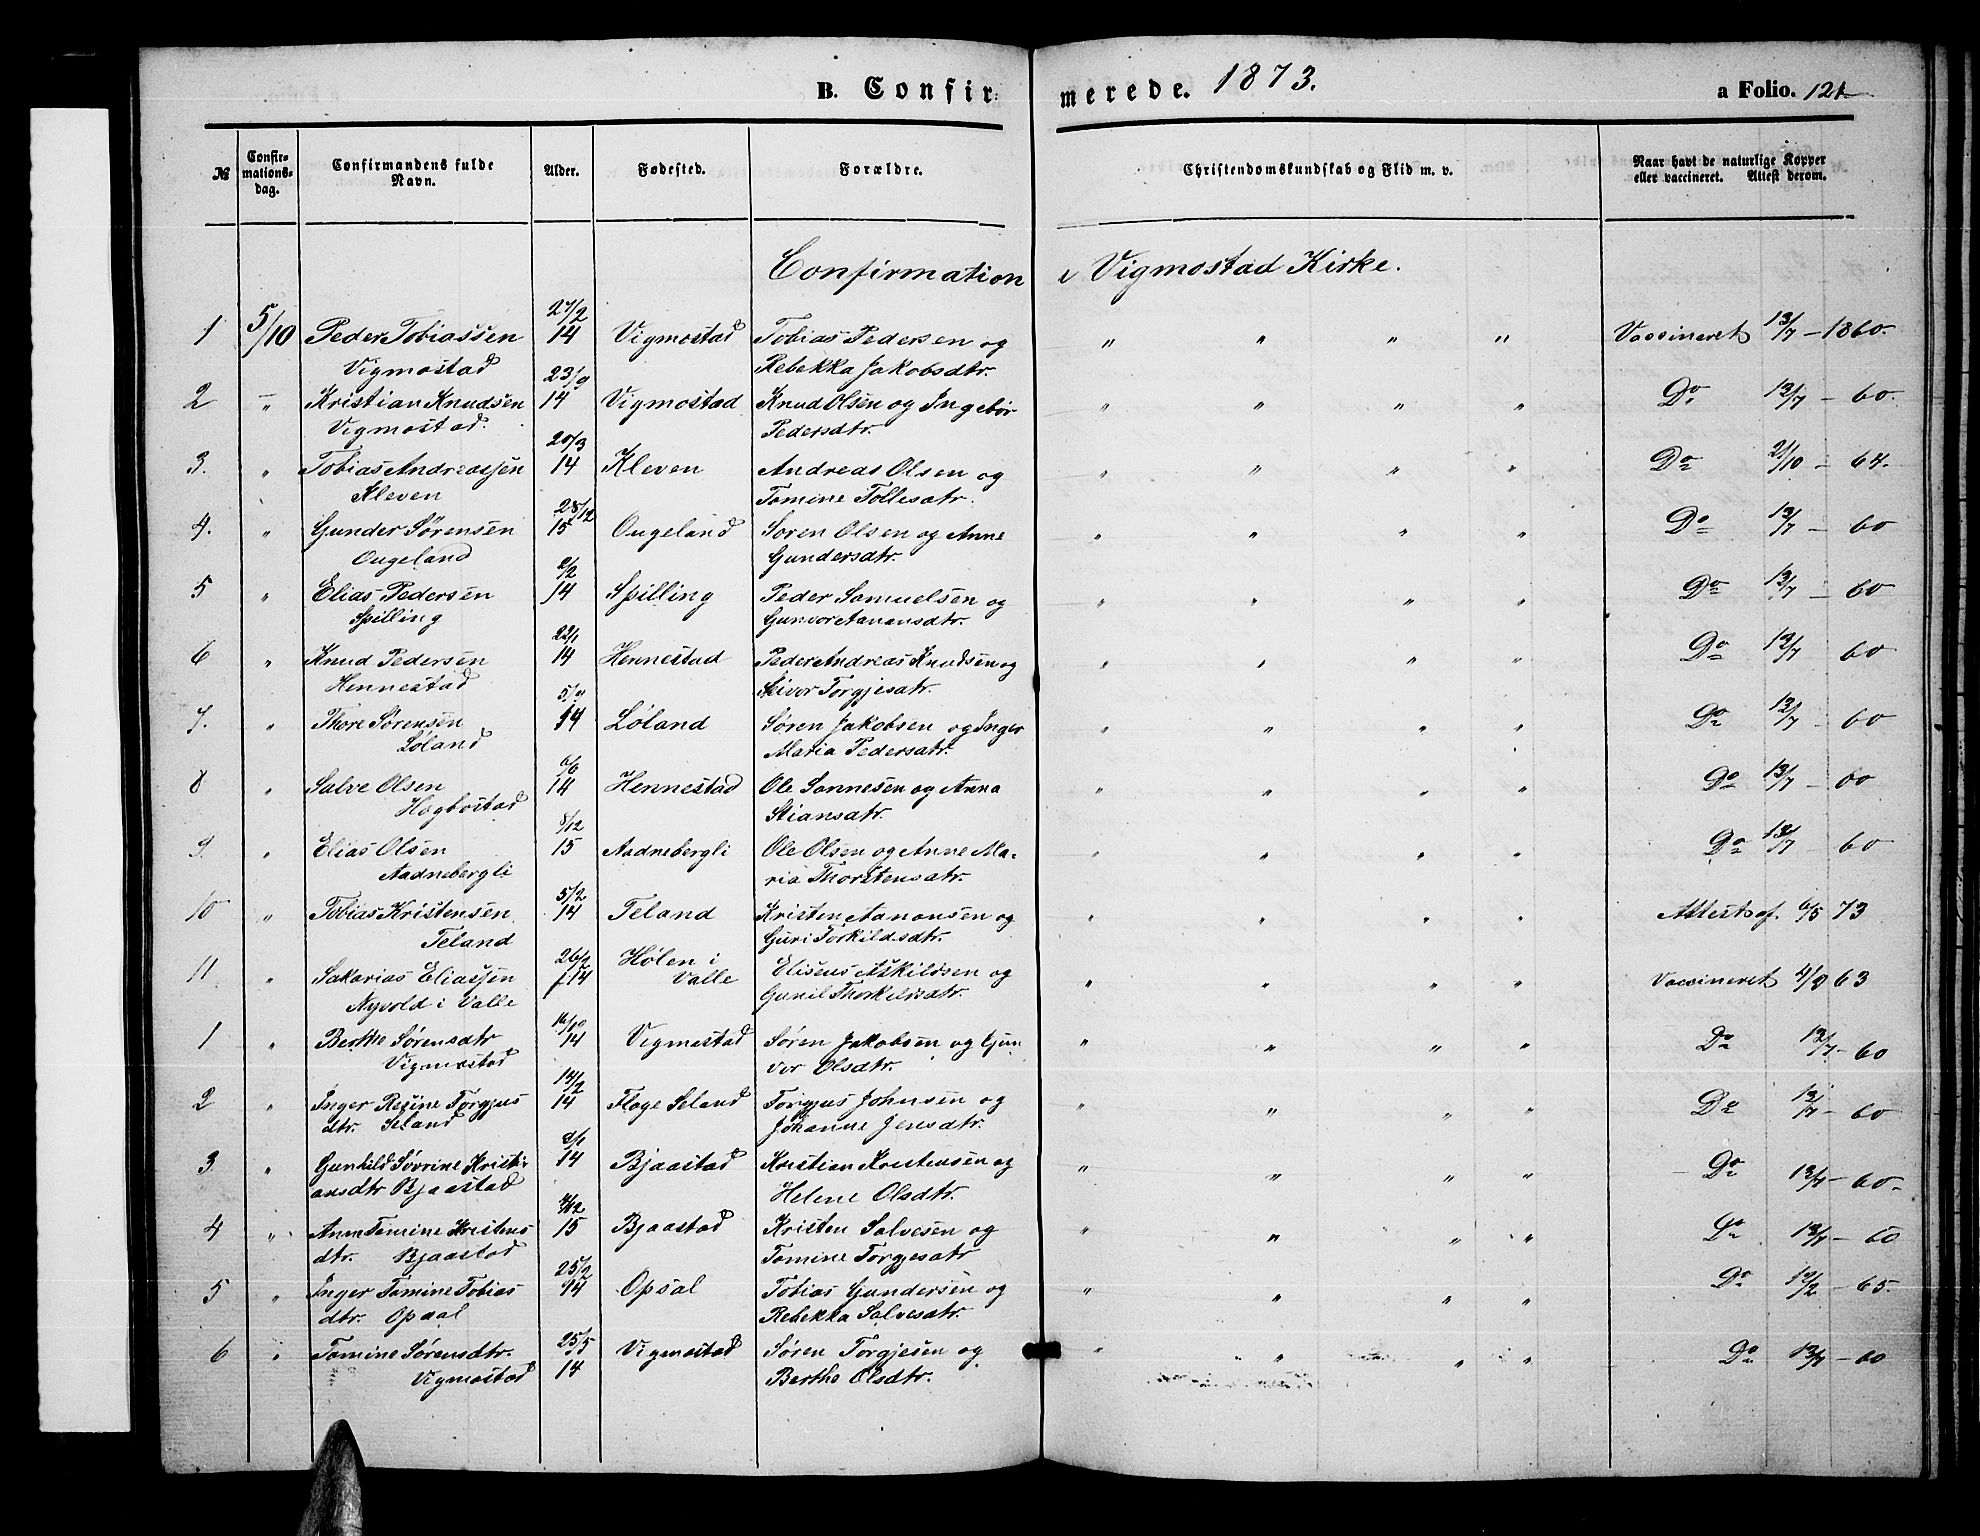 B. Confirmerede. 1873. a Folio. 121
№ Confirmationsdag. Confirmandens fulde Navn. Alder. Fødested. Forældre. Christendomskundskab og Flid m. v. Naar havt de naturlige Kopper eller vaccineret. Attest derom.
Confirmation i Vigmostad Kirke.
1 5/10 Peder Tobiassen 27/2 14 Vigmostad Tobias Pedersen og " " " " Vaccineret 13/7 - 1860.
Vigmostad Rebekka Jakobsdtr.
2 " Kristian Knudsen 23/9 14 Vigmostad Knud Olsen og Ingebor " " " " Do 13/7 - 60.
Vigmostad. Pedersdtr.
3. " Tobias Andreassen 20/3 14 Kleven Andreas Olsen og " " " " Do 21/10 - 64.
Kleven Tomine Tollesdtr.
4. " Gunder Sørensen 28/12 15 Ougeland Søren Olsen og Anne " " " " Do 13/7 - 60
Ougeland Gundersdtr.
5 " Elias Pedersen 2/2 14 Spilling Peder Samuelsen og " " " " Do 13/7 - 60
Spilling Gunvor Aanonsdtr.
6 " Knud Pedersen 22/1 14 Hennestad Peder Andreas Knudsen og " " " " Do 13/7 60
Hennestad Torgjesdtr.
7. " Thore Sørensen 14 Løland Søren Jakobsen og Inger " " " " Do 13/7 - 60
Løland Maria Pedersdtr.
8 " Salve Olsen 6/6 14 Hennestad Ole Sannesen og Anna " " " " Do 13/7 - 60
Høgbostad Stiansdtr.
9. " Elias Olsen 8/12 15 Aadnebergli Ole Olsen og Anne Ma- " " " " Do 13/7 - 60
Aadnebergli ria Thorstensdtr.
10 " Tobias Kristensen 5/2 14 Teland Kristen Aanonsen og " " " " Attest af. 6/5 73
Teland Guri Torkildsdtr.
11. " Sakarias Eliassen 26/2 14 Hølen i Eliseus Askildsen og " " " Vaccineret 4/9 63
Nyvold i Valle Valle Gunil Thorkildsdtr.
1 " Berthe Sørensdtr 16/10 14 Vigmostad Søren Jakobsen og Gun " " " " Do 13/7 - 60
Vigmostad vor Olsdtr.
2 " Inger Regine Torgjus 14/2 14 Floge Seland Torgjus Johnsen og " " " " Do 13/7 - 60
dtr. Seland Johanne Jensdtr.
3. " Gunhild Søvrine Kristi- 14 Bjaastad Kristian Kristensen og " " " " Do 13/7 - 60-
ansdtr Bjaastad Helene Olsdtr.
4 " Anne Tomine Kristens 15 Bjaastad Kristen Salvesen og " " " " Do 13/7 - 60
dtr. Bjaastad Tomine Torgjesdtr
5 " Inger Tomine Tobias 25/2 14 Opsal Tobias Gundersen og " " " " Do 12/2 - 65.
dtr. Opsal Rebekka Salvesdtr.
6 " Tomine Sørensdtr. 25/5 14 Vigmostad Søren Torgjesen og " " " " Do 13/7 - 60
Vigmostad Berthe Olsdtr.